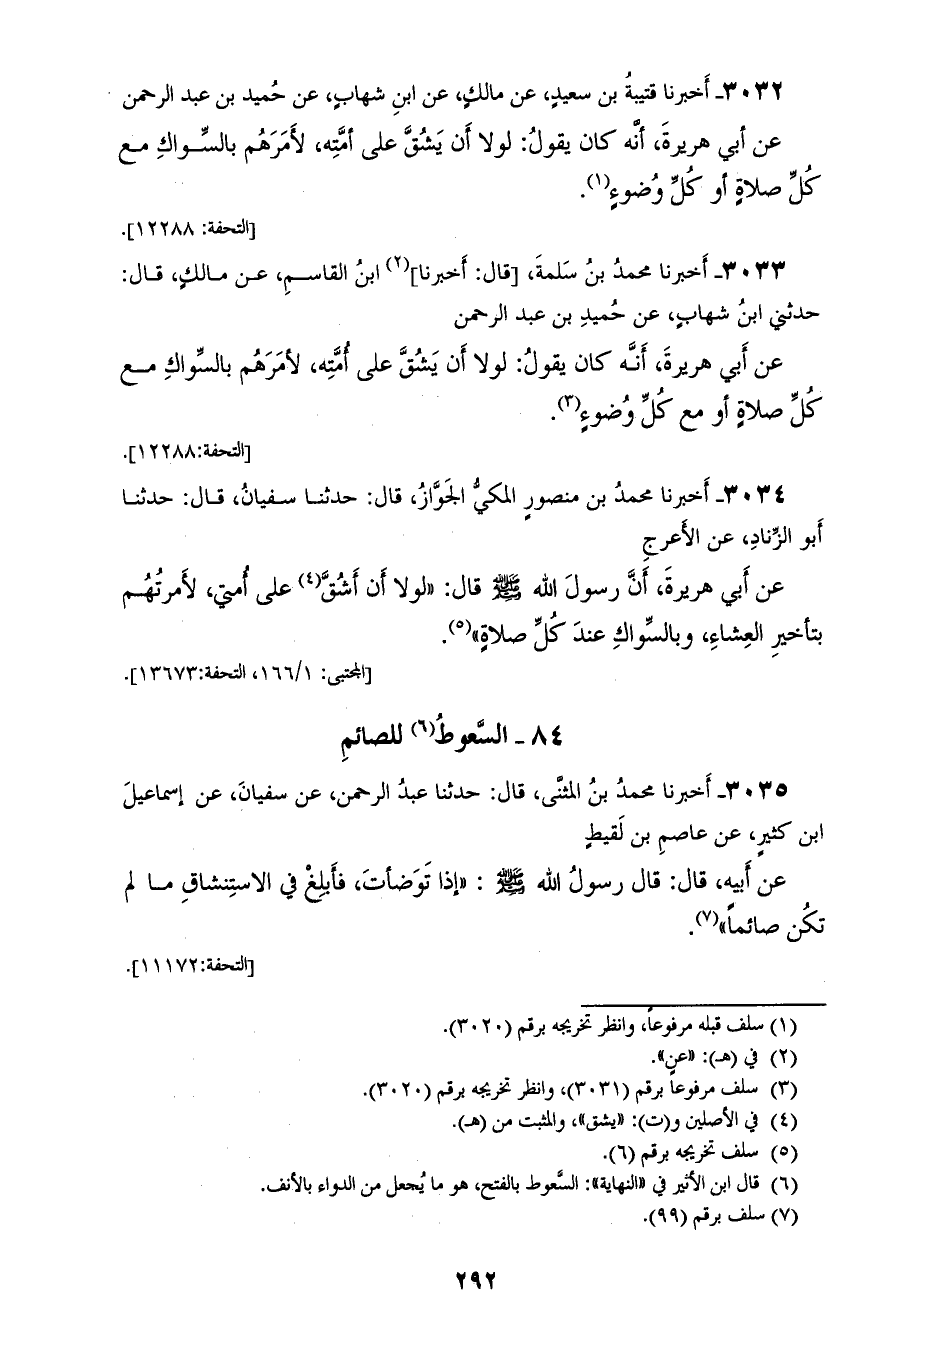 ٣٠٣٢ـ أَخبرنا قتيبةُ بن سعيدٍ، عن مالكٍ، عن ابنِ شهابٍ، عن حُميد بن عبد الرحمن
عن أبي هريرةَ، أنَّه كان يقولُ: لولا أن يَشُقَّ على أمَّتِه، لأَمَرَهُم بالسِّواكِ مع
كُلِّ صلاةٍ أو كُلِّ وُضوءٍ(١).
[التحفة: ١٢٢٨٨].
٣٠٣٣ـ أَخبرنا محمدُ بنُ سَلمةَ، [قال: أخبرنا](٢) ابنُ القاسمِ، عن مالكٍ، قال:
حدثني ابنُ شهابٍ، عن حُميدِ بن عبد الرحمن
عن أَبي هريرةَ، أَنَّه كان يقولُ: لولا أن يَشُقَّ على أُمَّتِه، لأمَرَهُم بالسِّواكِ مع
كُلِّ صلاةٍ أو مع كُلِّ وُضوءٍ(٣).
[التحفة:١٢٢٨٨].
٣٠٣٤ـ أَخبرنا محمدُ بن منصورٍ المكيُّ الجَوَّازُ، قال: حدثنا سفيانُ، قال: حدثنا
أَبو الزِّنادِ، عن الأَعرجِ
عن أَبي هريرةَ، أَنَّ رسولَ الله ﷺ قال: «لولا أن أَشُقَّ(٤) على أُمتي، لأَمرتُهُم
بتأخيرِ العِشاءِ، وبالسِّواكِ عندَ كُلِّ صلاةٍ»(٥).
[المجتبى: ١٦٦/١، التحفة:١٣٦٧٣].
٨٤ - السَّعوطُ(٦) للصائمِ
٣٠٣٥ـ أَخبرنا محمدُ بنُ المثنَّى، قال: حدثنا عبدُ الرحمن، عن سفيانَ، عن إسماعيلَ
ابن كثيرٍ، عن عاصمِ بن لَقيطٍ
عن أَبيه، قال: قال رسولُ الله ﷺ : «إذا تَوَضأتَ، فأَبلِغْ في الاستِنشاقِ ما لم
تكُن صائماً»(٧).
[التحفة:١١١٧٢].
(١) سلف قبله مرفوعاً، وانظر تخريجه برقم (٣٠٢٠).
(٢) في (هـ): «عن».
(٣) سلف مرفوعاً برقم (٣٠٣١)، وانظر تخريجه برقم (٣٠٢٠).
(٤) في الأصلين و(ت): «يشق»، والمثبت من (هـ).
(٥) سلف تخريجه برقم (٦).
(٦) قال ابن الأثير في «النهاية»: السَّعوط بالفتح، هو ما يُجعل من الدواء بالأنف.
(٧) سلف برقم (٩٩).
٢٩٢